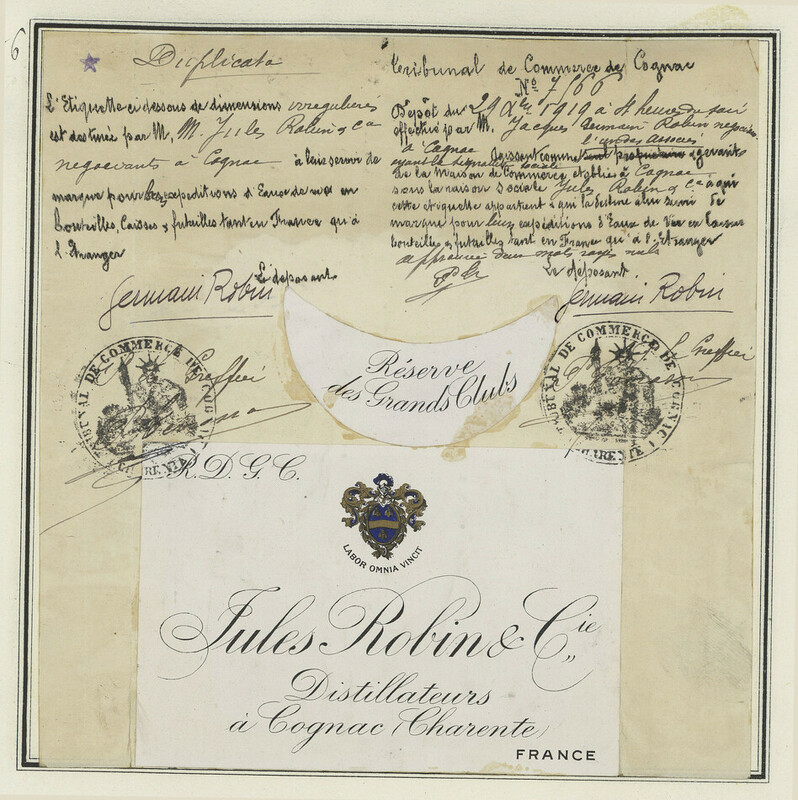 6
Duplicata
L'Etiquette ci dessous de dimensions irregulieres
est destinée par M. M. Jules Robin & Cie
negociants à Cognac à leur servir de
marque pour les expeditions d'Eaux de vie en
bouteilles, Caisses & futailles tant en France qu'à
l'Etranger
Le déposant
Germain Robin
Le Greffier
Tribunal de Commerce de Cognac
No 7166
Dépôt du 29 1919 à heure du soir
effectué par M. Jacques Germain Robin negociant
à Cognac l'un des Associés
ayant la signature sociale agissant comme gérants
de la Maison de Commerce établie à Cognac
sous la raison sociale Jules Robin & Cie à qui
cette etiquette appartient & qui la destine à lui servir de
marque pour leurs expéditions d'Eaux de Vie en caisses
bouteilles & futailles tant en France qu'à l'Etranger
approuvé deux mots rayés nuls
Le déposant
Germain Robin
Le Greffier
TRIBUNAL DE COMMERCE DE COGNAC
CHARENTE
TRIBUNAL DE COMMERCE DE COGNAC
CHARENTE
Réserve
des Grands Clubs
R. D. G. C.
LABOR OMNIA VINCIT
Jules Robin & Cie
Distillateurs
à Cognac (Charente)
FRANCE